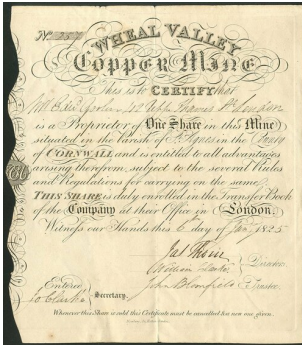 No. 257
WHEAL VALLEY
COPPER MINE
This is to CERTIFY that
Upper Thomas St. London
is a Proprietor of One Share in this Mine
situated in the Parish of St. Agnes in the County
of CORNWALL and is entitled to all advantages
arising therefrom, subject to the several Rules
and Regulations for carrying on the same.
THIS SHARE is duly enrolled in the Transfer Book
of the Company at their Office in London.
Witness our Hands this 6 day of Jany 1825
Jas Thorne
William
Director
Entered
John Bloomfield Trustee
Secretary.
Whenever this Share is sold this Certificate must be cancelled for new one given.